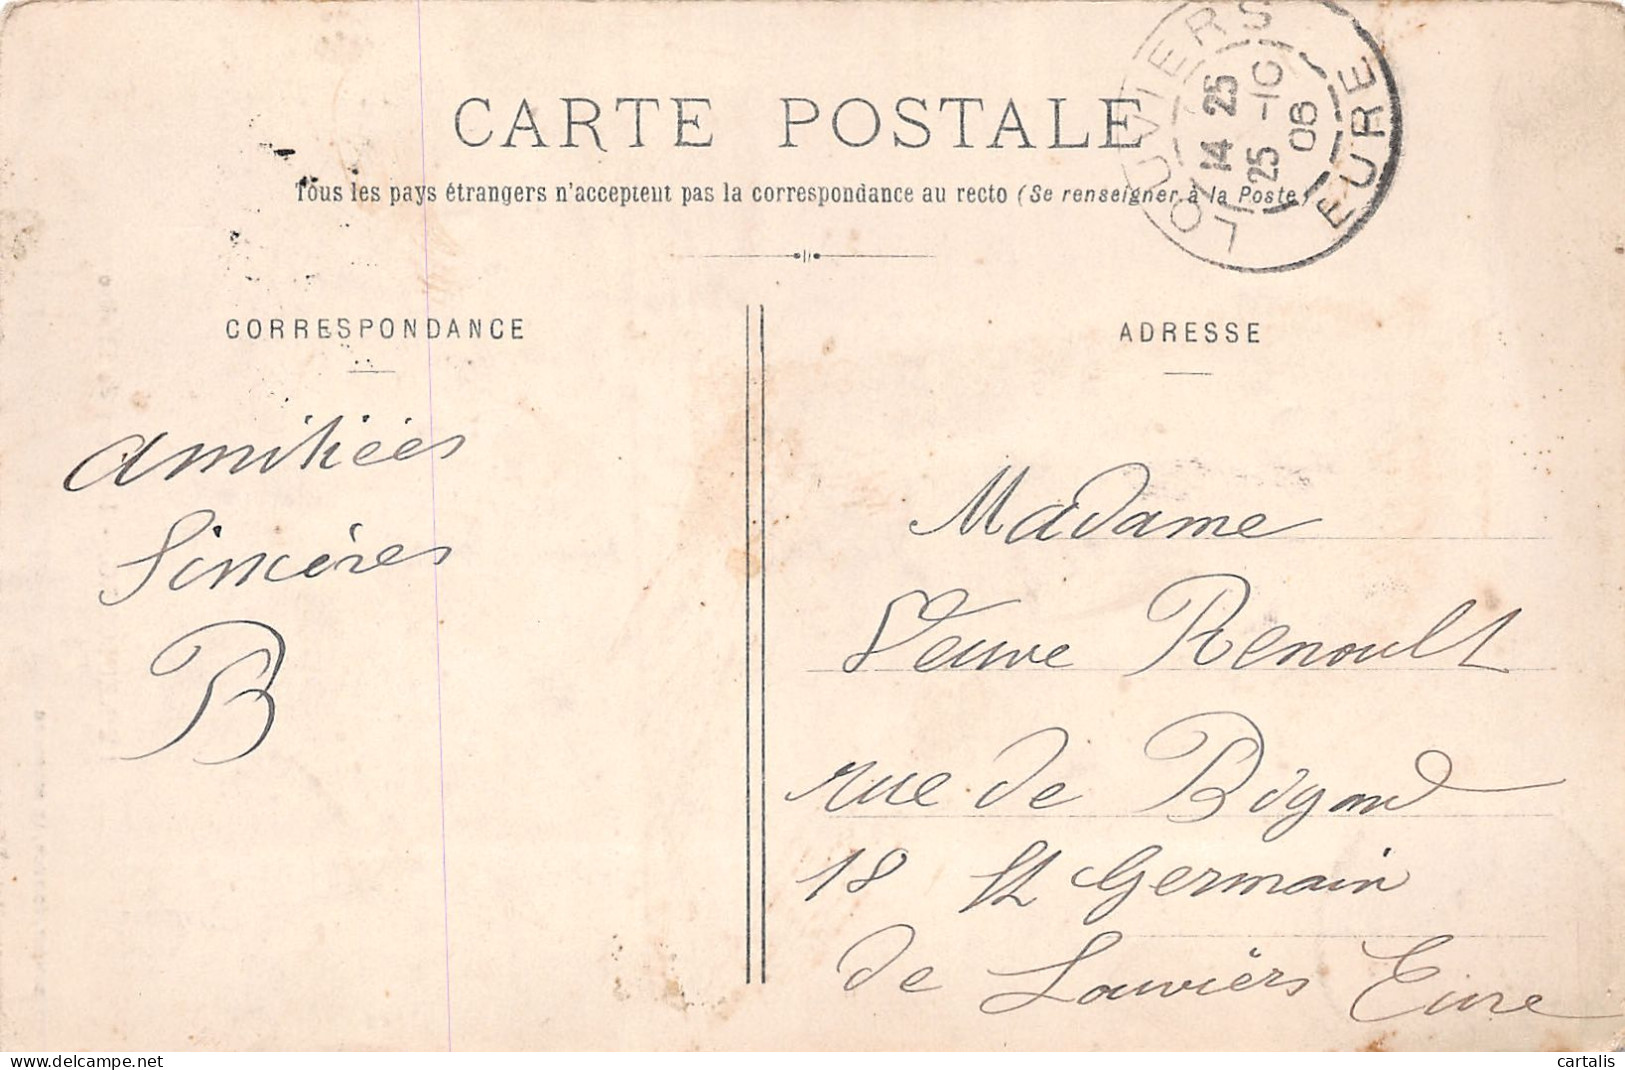 CARTE POSTALE
Tous les pays étrangers n'acceptent pas la correspondance au recto (Se renseigner à la Poste)
LOUVIERS
EURE
14 25
25 -10
06
CORRESPONDANCE
amitiées
Sincères
B
ADRESSE
Madame
Veuve Renoult
rue de Bigard
18 St Germain
de Louviers Eure
cartalis